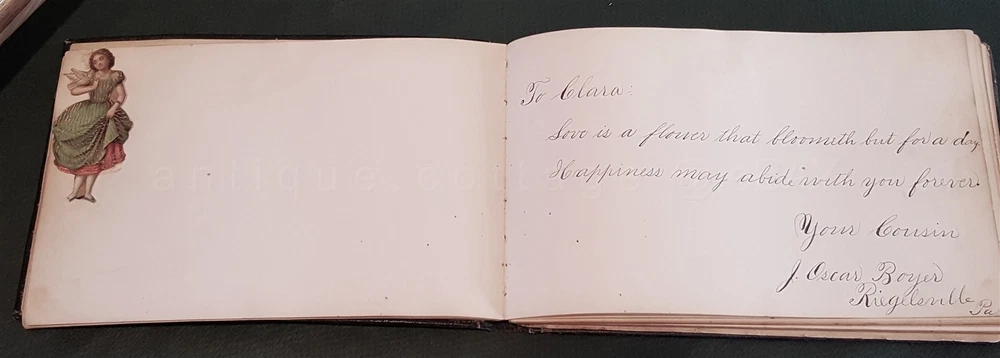 To Clara:
Love is a flower that bloometh but for a day.
Happiness may abide with you forever.
Your Cousin
J. Oscar Boyer
Riegelsville
Pa